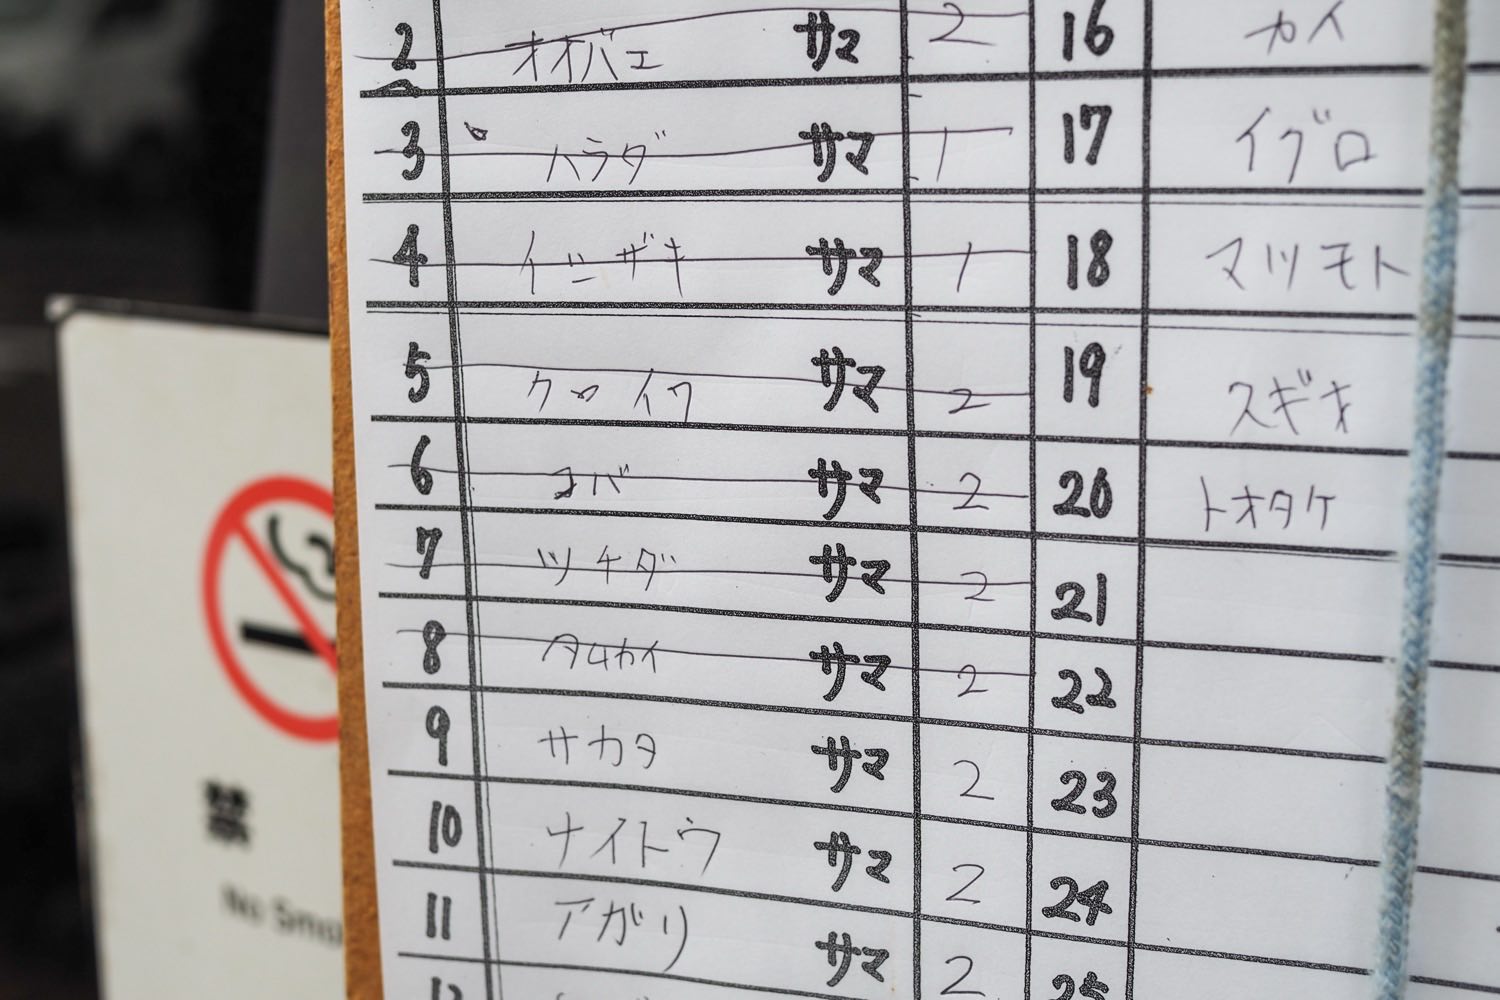 2 オオバエ サマ 2
3 ハラダ サマ 1
4 イシザキ サマ 1
5 クロイワ サマ 2
6 コバ サマ 2
7 ツチダ サマ 2
8 タムカイ サマ 2
9 サカタ サマ 2
10 ナイトウ サマ 2
11 アガリ サマ 2
12
16 カイ
17 イグロ
18 マツモト
19 スギキ
20 トオタケ
21
22
23
24
25
禁
No Smo